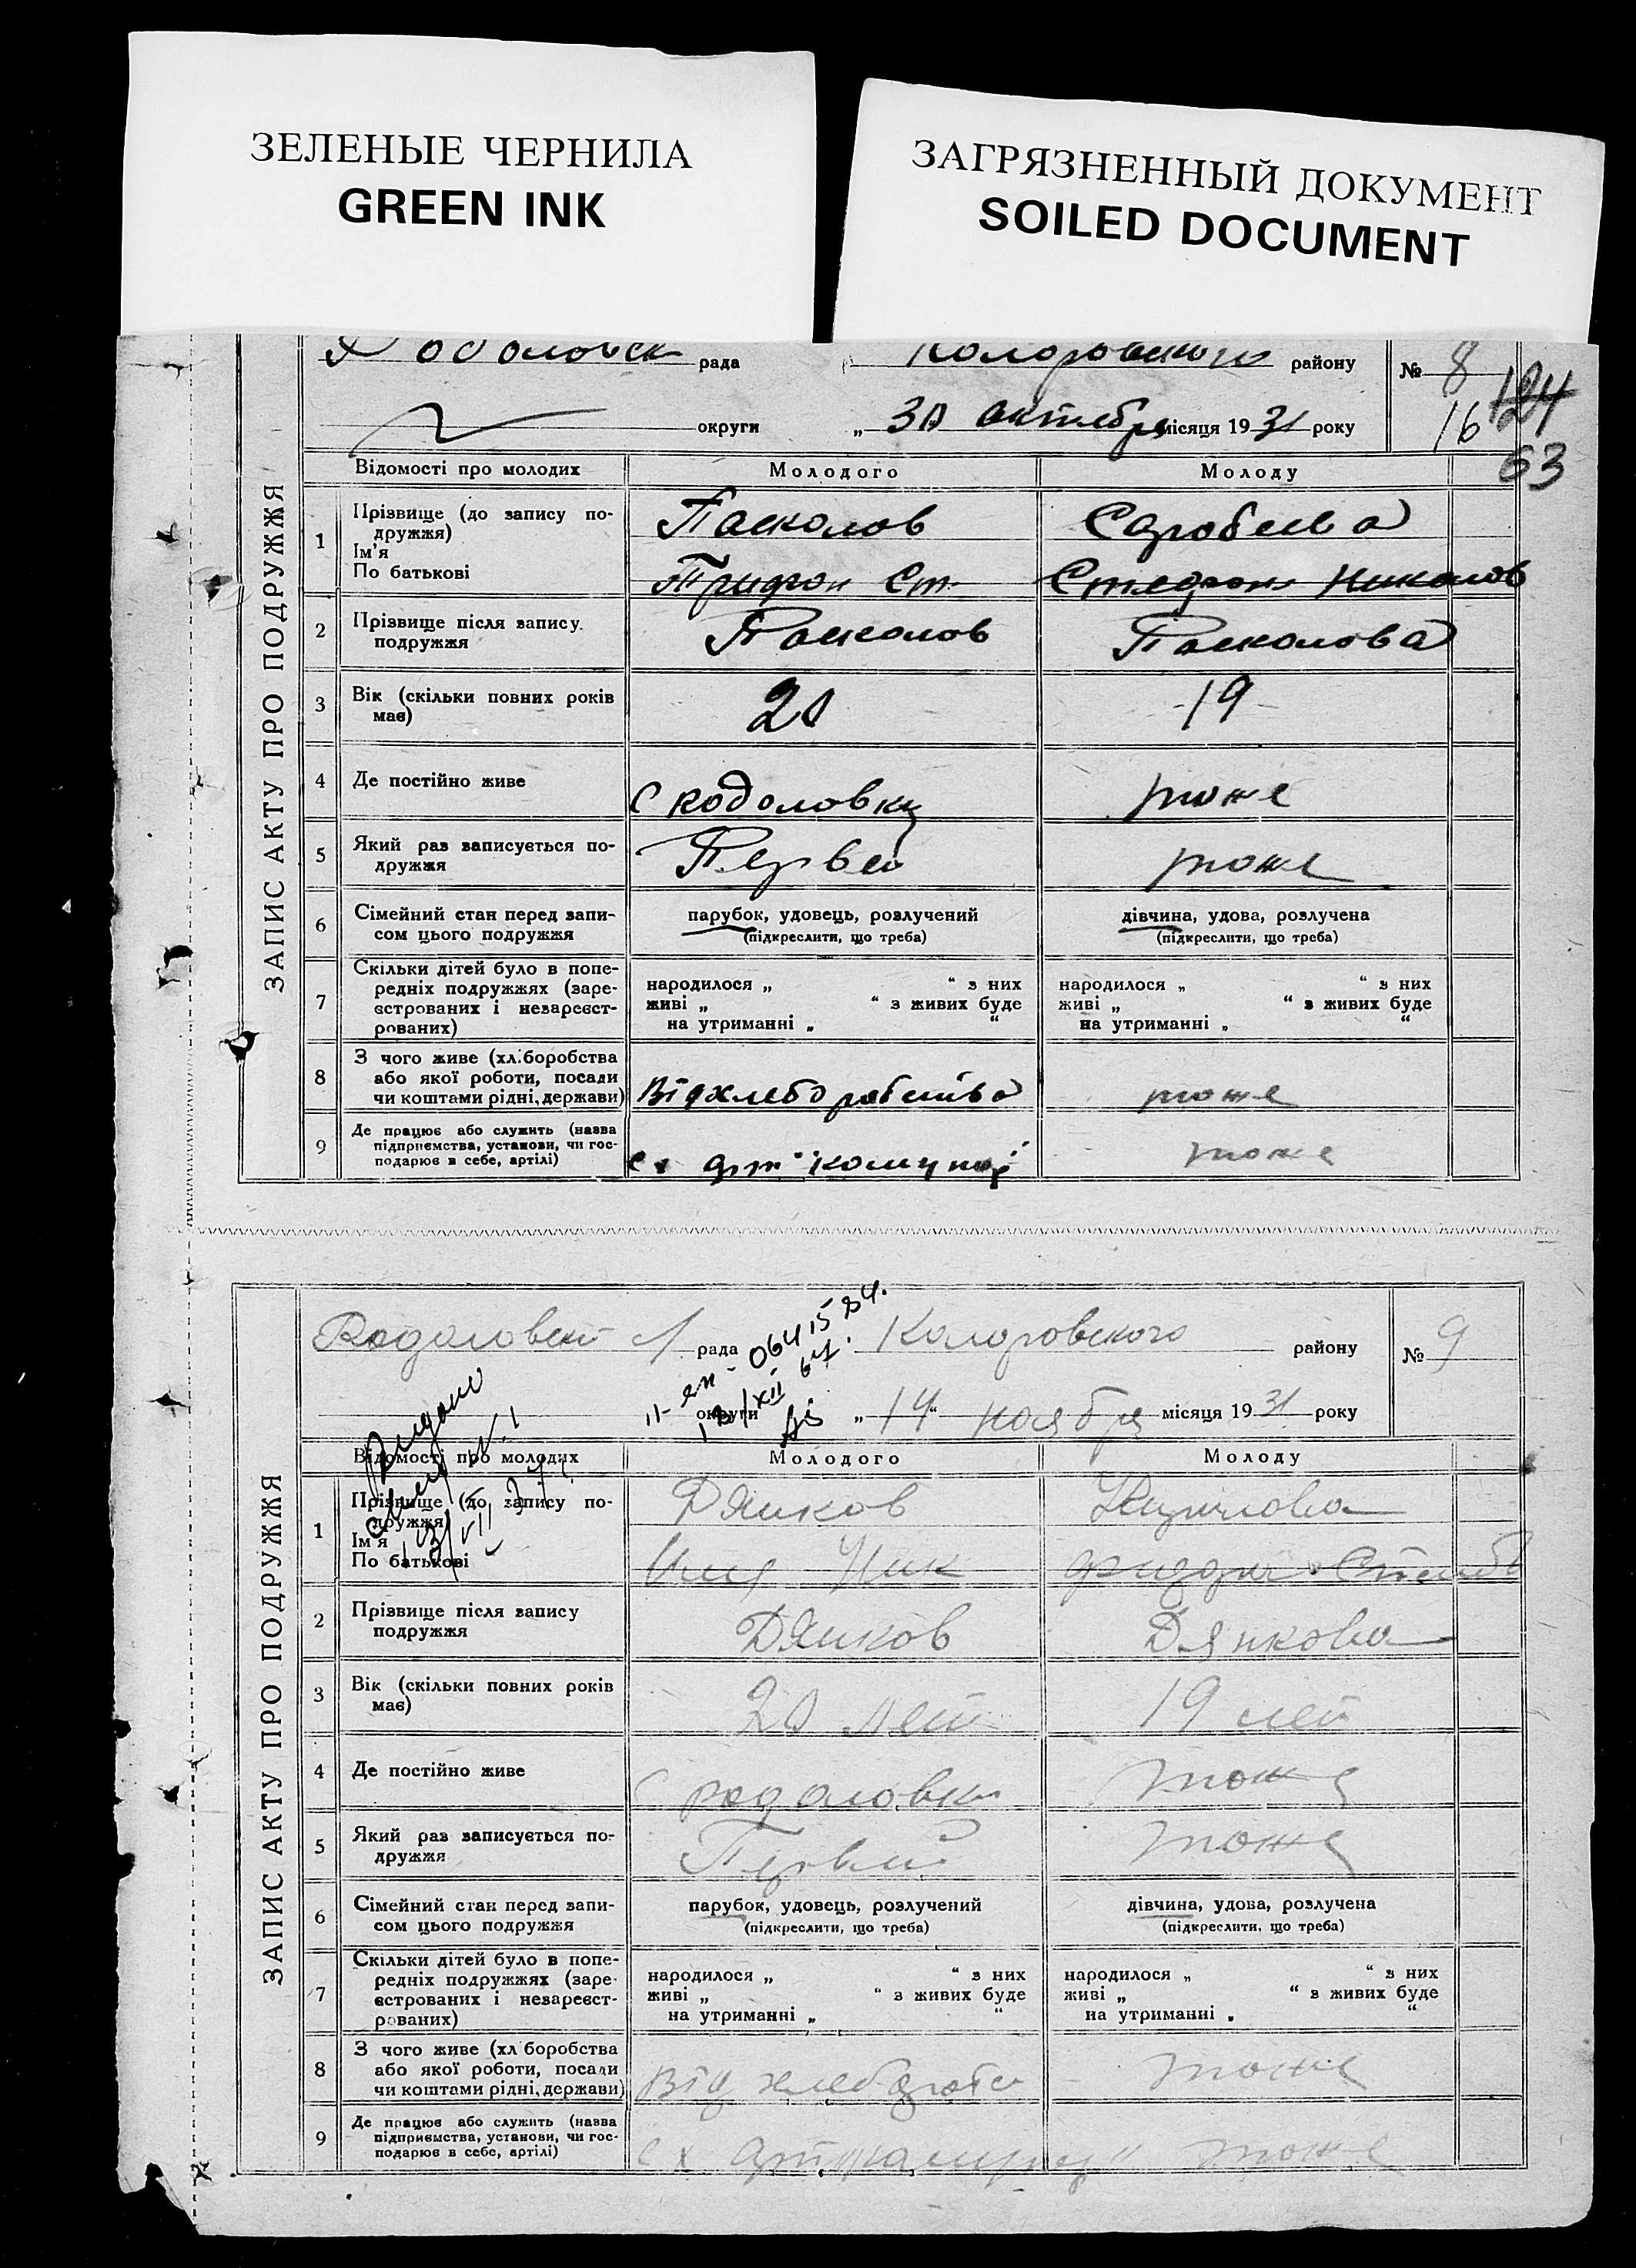 ЗЕЛЕНЫЕ ЧЕРНИЛА
GREEN INK
ЗАГРЯЗНЕННЫЙ ДОКУМЕНТ
SOILED DOCUMENT
рада району № 8
округи „ 30 октебря місяця 1931 року 16 124
63
ЗАПИС АКТУ ПРО ПОДРУЖЖЯ
Відомості про молодих Молодого Молоду
1 Прізвище (до запису по-
дружжя)
Ім'я
По батькові
Пасколов
Трифон Ст.
2 Прізвище після запису
подружжя
Пасколов Пасколова
3 Вік (скільки повних років
має)
20 19
4 Де постійно живе
С кодоловки тоже
5 Який раз записується по-
дружжя
Первей тоже
6 Сімейний стан перед запи-
сом цього подружжя
парубок, удовець, розлучений
(підкреслити, що треба)
дівчина, удова, розлучена
(підкреслити, що треба)
7 Скільки дітей було в попе-
редніх подружжях (заре-
єстрованих і незареєст-
рованих)
народилося „ “ з них
живі „ “ з живих буде
на утриманні „ “
народилося „ “ з них
живі „ “ з живих буде
на утриманні „ “
8 З чого живе (хліборобства
або якої роботи, посади
чи коштами рідні, держави)
Від хлеборобства тоже
9 Де працює або служить (назва
підприємства, установи, чи гос-
подарює в себе, артілі)
тоже
ЗАПИС АКТУ ПРО ПОДРУЖЖЯ
рада Коларовского району № 9
округи „ 14 “ ноября місяця 1931 року
Видано
Відомості про молодих Молодого Молоду
1 Прізвище (до запису по-
дружжя)
Ім'я
По батькові
Дянков
Ник
2 Прізвище після запису
подружжя
Дянков Дянкова
3 Вік (скільки повних років
має)
20 лет 19 лет
4 Де постійно живе
тоже
5 Який раз записується по-
дружжя
Первий тоже
6 Сімейний стан перед запи-
сом цього подружжя
парубок, удовець, розлучений
(підкреслити, що треба)
дівчина, удова, розлучена
(підкреслити, що треба)
7 Скільки дітей було в попе-
редніх подружжях (заре-
єстрованих і незареєст-
рованих)
народилося „ “ з них
живі „ “ з живих буде
на утриманні „ “
народилося „ “ з них
живі „ “ з живих буде
на утриманні „ “
8 З чого живе (хліборобства
або якої роботи, посади
чи коштами рідні, держави)
Від тоже
9 Де працює або служить (назва
підприємства, установи, чи гос-
подарює в себе, артілі)
тоже